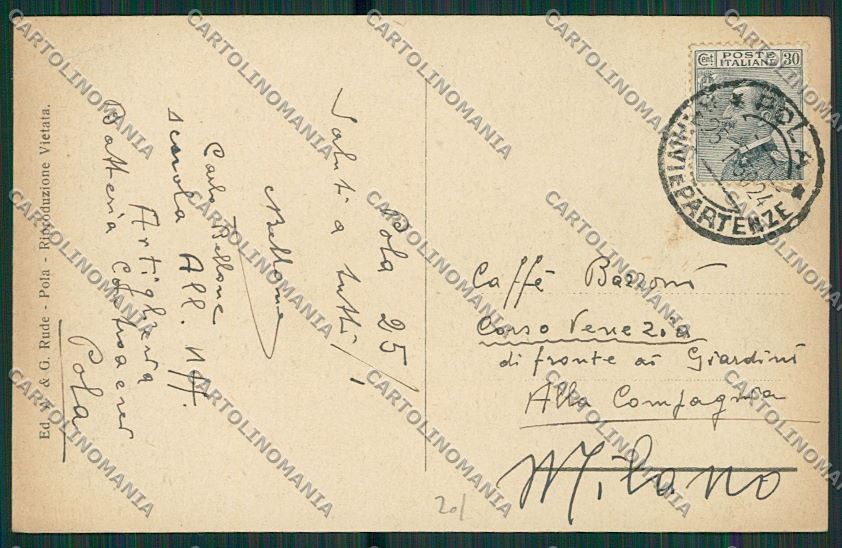 Pola 25/
Saluti a tutti
Bellone
Carlo Bellone
scuola All. Uff.
Artiglieria
Batteria
Pola
Ed. & G. Rude - Pola - Riproduzione Vietata.
Cent POSTE ITALIANE 30
POLA
ARRIVI E PARTENZE
24
Caffè Bazzoni
Corso Venezia
di fronte ai Giardini
Alla Compagnia
Milano
20/
CARTOLINOMANIA